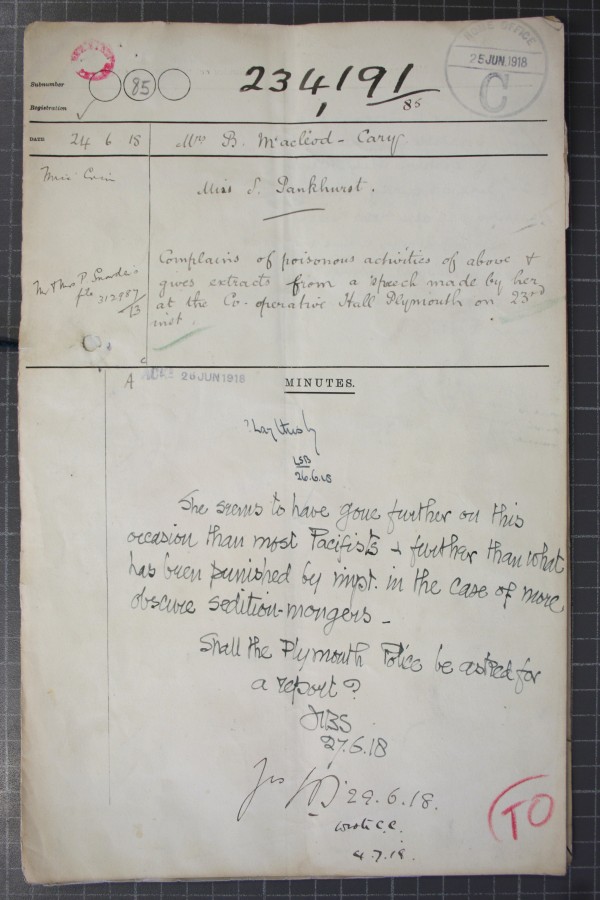 HOME OFFICE
25 JUN. 1918
C
Subnumber
85
Registration
234,191
85
DATE 24 6 18 Mrs B. Macleod-Cary
Miss S. Pankhurst.
Mr & Mrs P. Snowden's
file 312987/13
Complains of poisonous activities of above &
gives extracts from a speech made by her
at the Co-operative Hall Plymouth on 23rd
inst.
A
26 JUN 1918
MINUTES.
26.6.18
She seems to have gone further on this
occasion than most Pacifists & further than what
has been punished by impt. in the case of more
obscure sedition-mongers -
Shall the Plymouth Police be asked for
a report?
27.6.18
Yes
29.6.18.
wrote C.C.
4.7.18.
TO